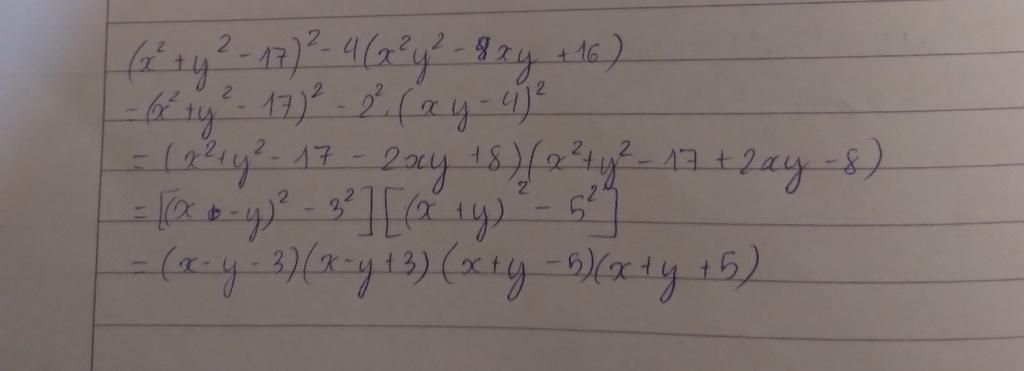 (x²+y²-17)²-4(x²y²-8xy+16)
=(x²+y²-17)²-2².(xy-4)²
=(x²+y²-17-2xy+8)(x²+y²-17+2xy-8)
=[(x-y)²-3²][(x+y)²-5²]
=(x-y-3)(x-y+3)(x+y-5)(x+y+5)